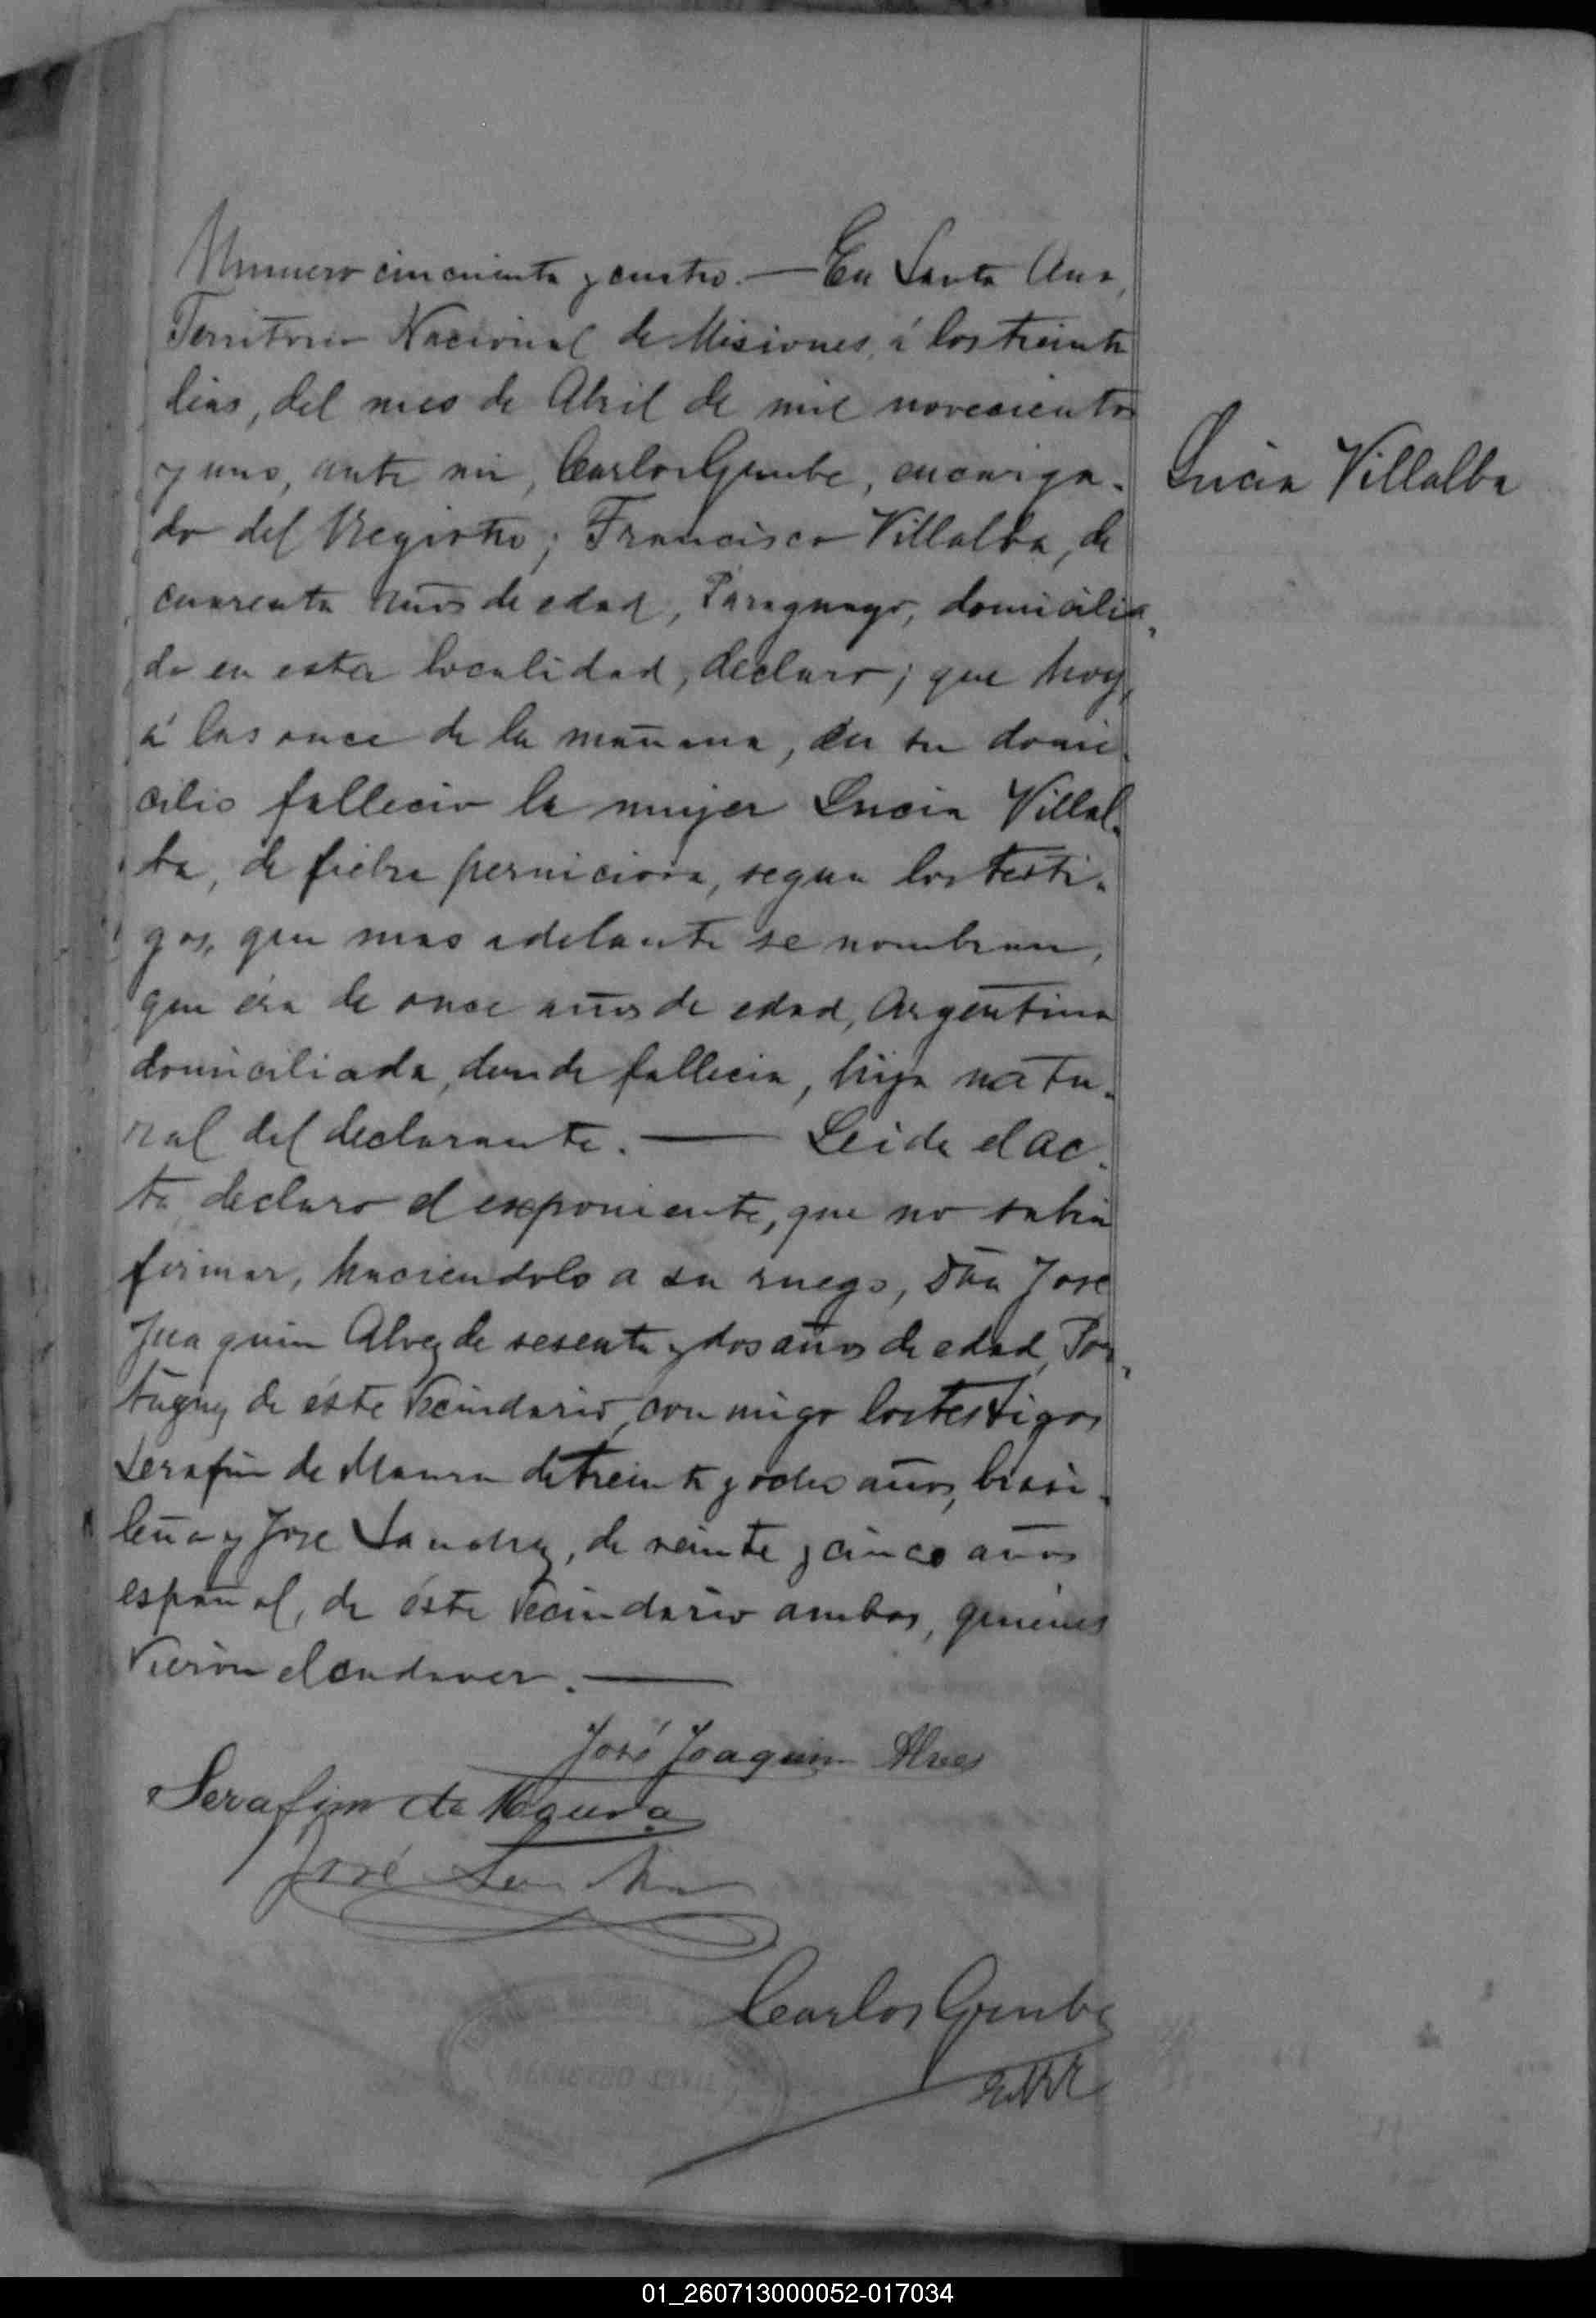 Numero cincuenta y cuatro. — En Santa Ana,
Territorio Nacional de Misiones, á los treinta
dias, del mes de Abril de mil novecientos
y uno, ante mi, Carlos Grube, encarga-
do del Registro; Francisco Villalba, de
cuarenta años de edad, Paraguayo, domicilia-
do en esta localidad, declaro; que hoy,
á las once de la mañana, en su domi-
cilio fallecio la mujer Lucia Villal-
ba, de fiebre perniciosa, segun los testi-
gos, que mas adelante se nombran,
que éra de once años de edad, Argentina
domiciliada, donde fallecia, hija natu-
ral del declarante. — Leida el ac-
ta declaro el exponiente, que no sabia
firmar, haciendolo a su ruego, Don José
Juaquin Alvez de sesenta y dos años de edad, Por-
tuguez de éste Vecindario, con migo los testigos
Serafin de Maura de treinta y ocho años, brasi-
leño y Jose Sanchez, de veinte y cinco años
español, de éste Vecindario ambos, quienes
Vieron el cadaver. —
Lucia Villalba
José Joaquim Alves
Serafim de Moura
José
Carlos Grube
REGISTRO CIVIL